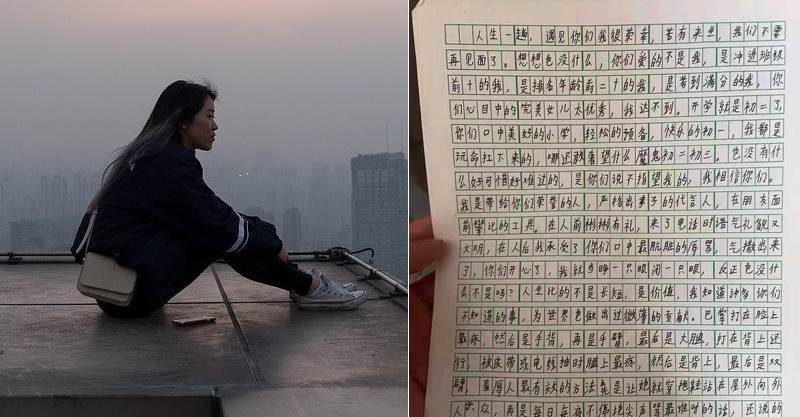 人生一趟，遇见你们我很荣幸，若有来生，我们不要
再见面了。想想也没什么，你们爱的不是我，是冲进班级
前十的我，是排名年龄前二十的我，是考到满分的我，你
们心目中的完美女儿太优秀，我达不到。开学就是初二了，
你们口中美好的小学，轻松的预备，快乐的初一，我都是
玩命扛下来的，哪还敢奢望什么魔鬼初二初三。也没有什
么好可惜好难过的，是你们说不指望我的，我相信你们。
我是带给你们荣誉的人，严格出妻子的代言人，在朋友面
前攀比的工具。在人前彬彬有礼，来了电话时语气礼貌又
文明，在人后我承受了你们口中最肮脏的辱骂，气撒出来
了，你们开心了，我就当睁一只眼闭一只眼，反正也没什
么不是吗？人生比的不是长短，是价值，我知道许多你们
不知道的事，为世界也做出过微薄的贡献。巴掌打在脸上
最疼，然后是手背，再是手臂，最后是大腿，打在背上还
行，被皮带或电线抽时腿上最疼，然后是背上，最后是双
臂，羞辱人最有效的方法就是让她就穿拖鞋站在屋外向外
人 众，再是每日每夜不停地尖声骂最难听的话，还说的